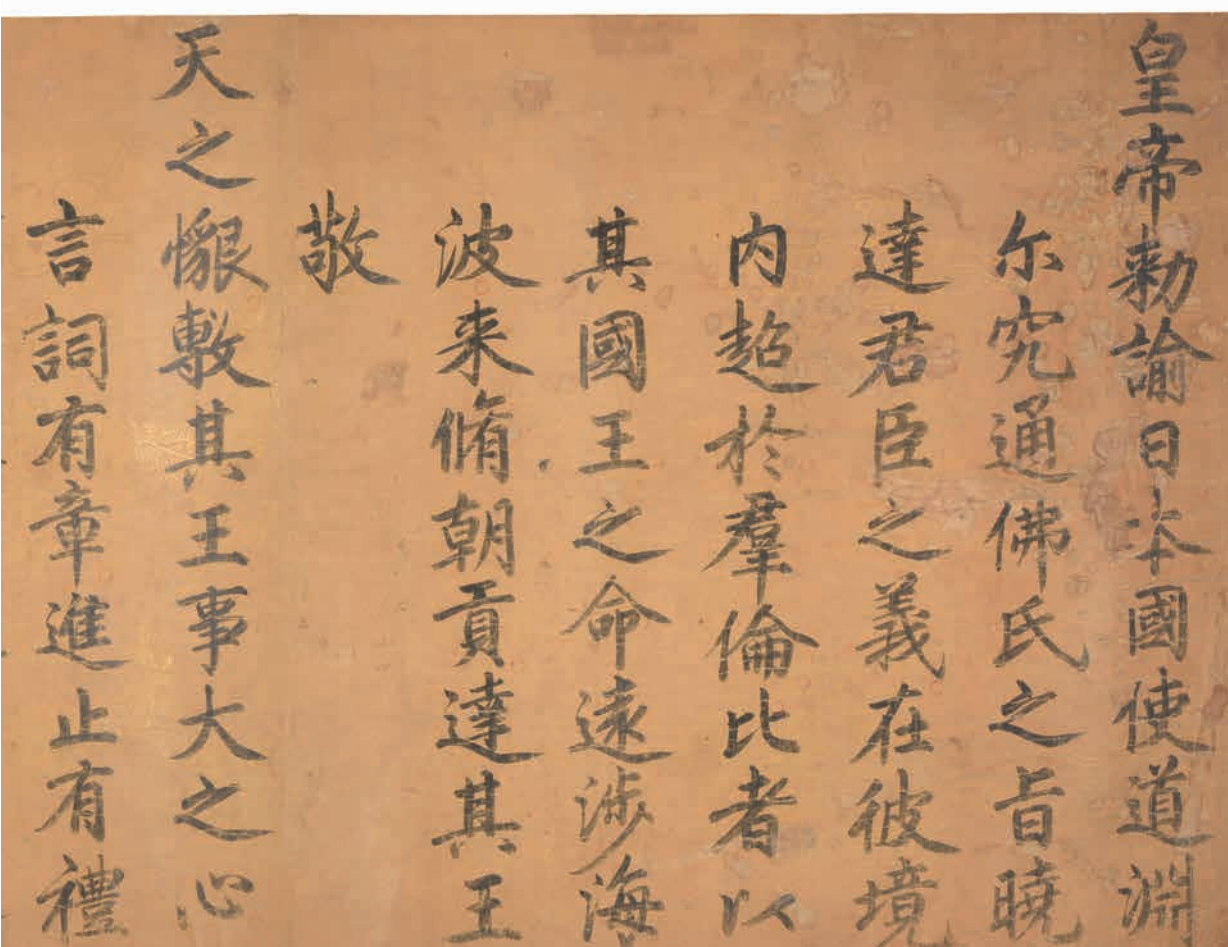 皇帝勅諭日本國使道淵
尓究通佛氏之旨曉
達君臣之義在彼境
内超於羣倫比者以
其國王之命遠涉海
波来脩朝貢達其王
敬
天之懇敷其王事大之心
言詞有章進止有禮